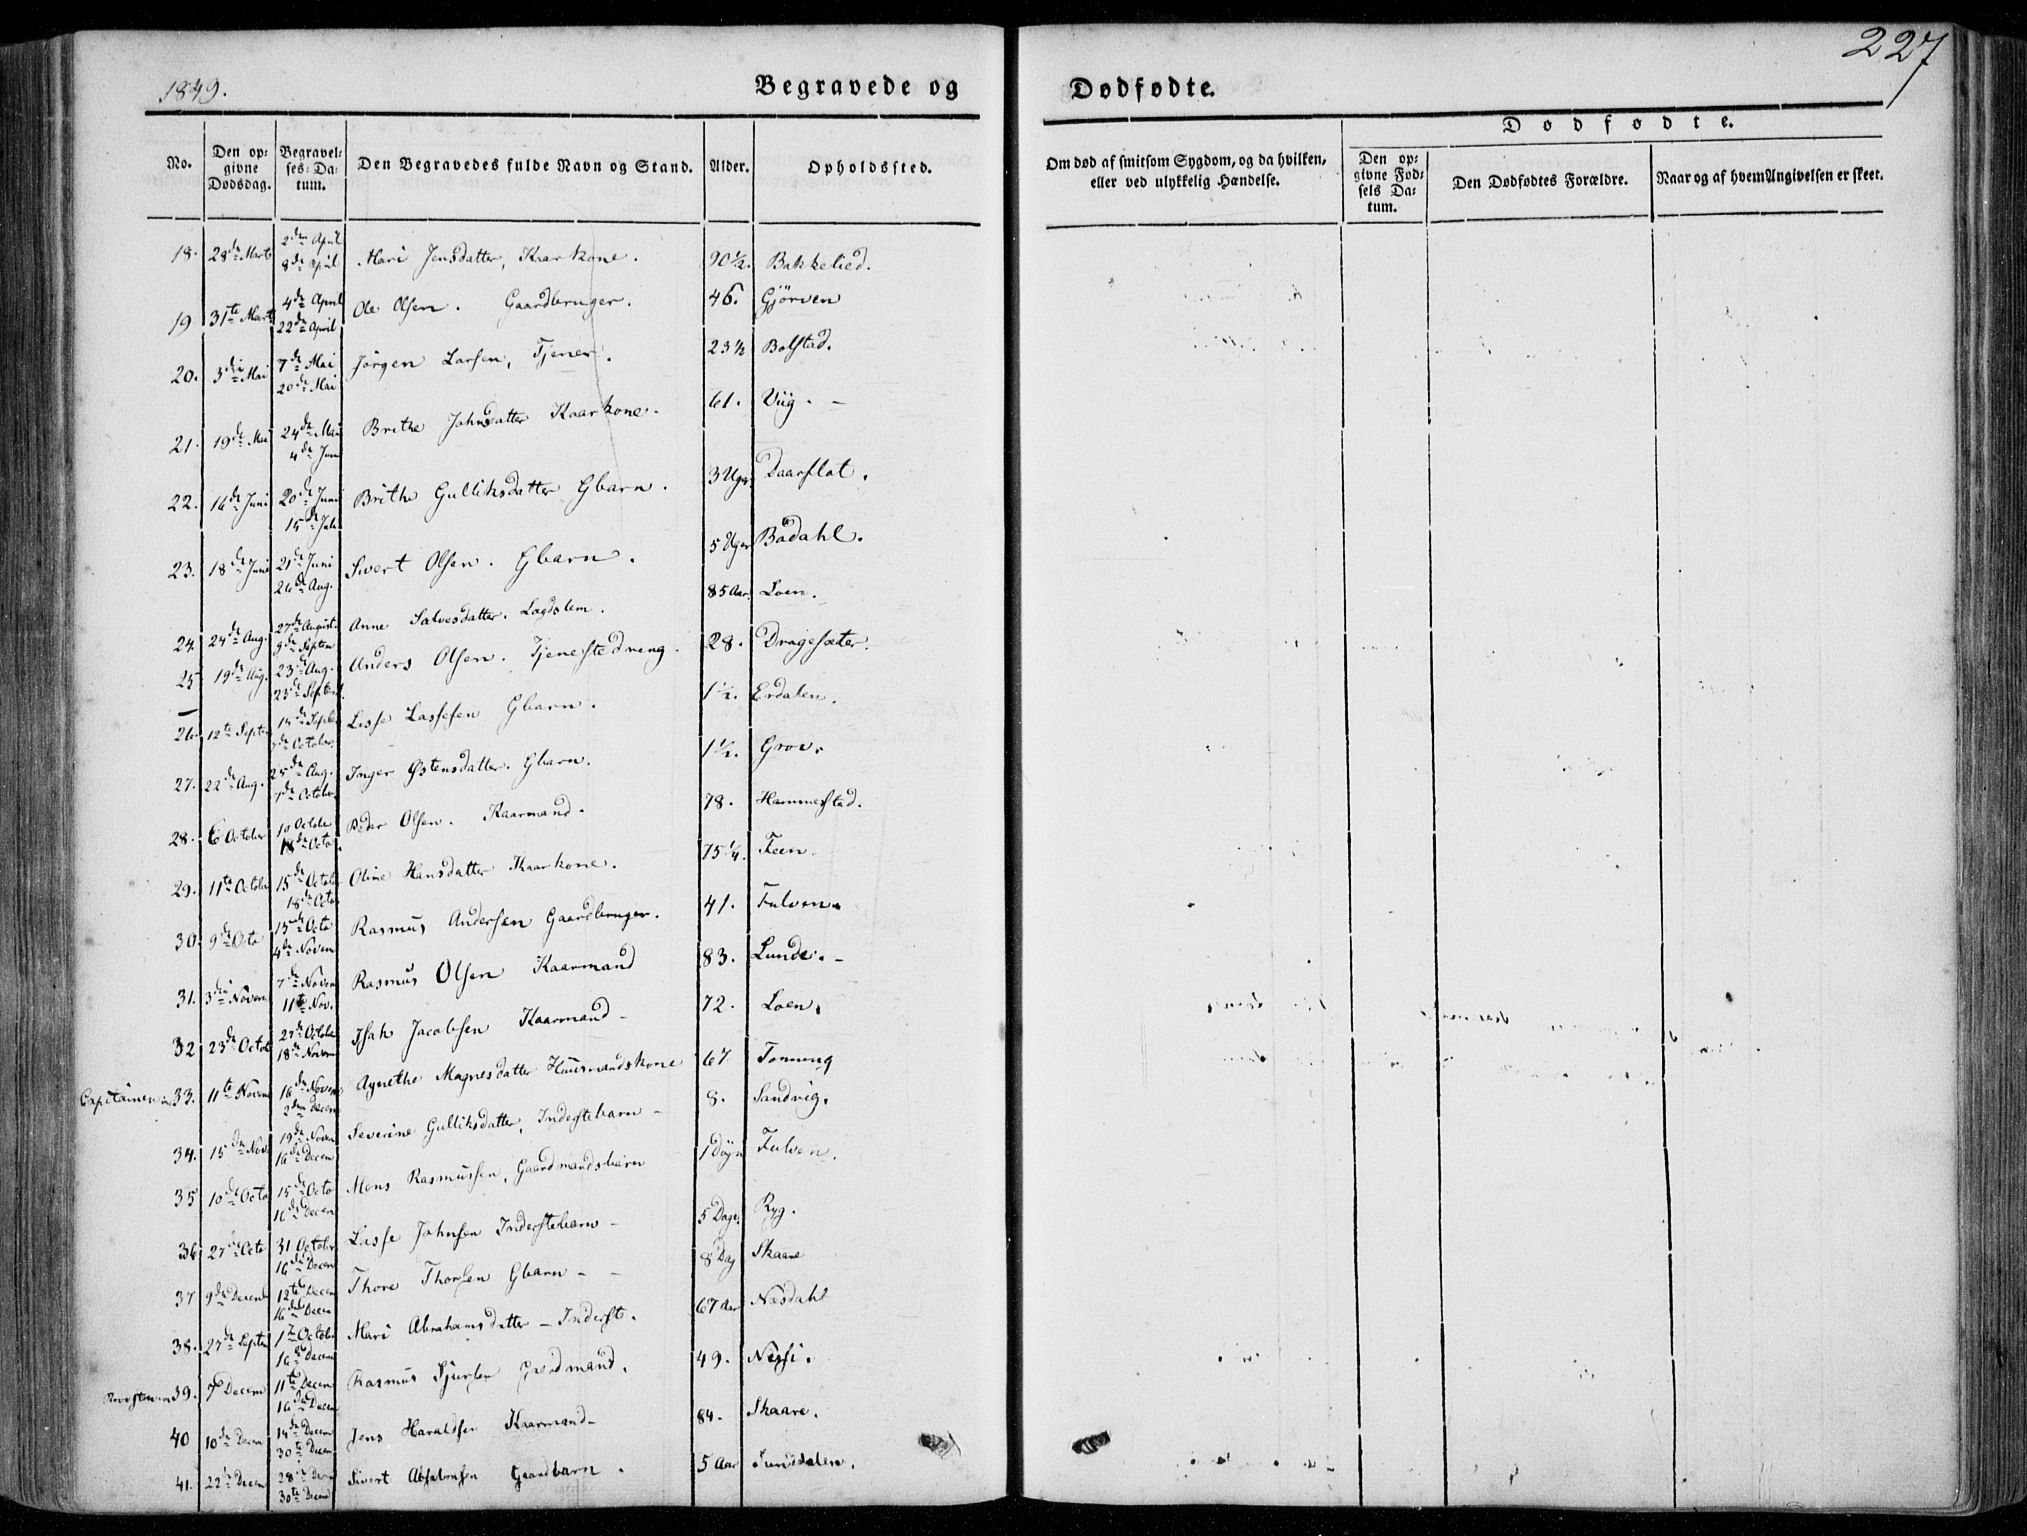 227
1849.
Begravede og
Dødfødte.
No.
Den op=
givne
Dødsdag.
Begravel=
ses=Da=
tum.
Den Begravedes fulde Navn og Stand.
Alder.
Opholdssted.
Om død af smitsom Sygdom, og da hvilken,
eller ved ulykkelig Hændelse.
Dødfødte.
Den op=
givne Fød=
sels Da=
tum.
Den Dødfødtes Forældre.
Naar og af hvem Angivelsen er skeet.
18. 28de Marts 2den April 8de April Mari Jensdatter, Kaarkone. 90 1/2. Bakkelied.
19 31te Marts 4de April 22de April Ole Olsen. Gaardbruger. 46. Gjörven
20. 3die Mai 7de Mai 20de Mai Jörgen Larsen, Tjener. 23 1/2 Bolstad.
21. 19de Mai 24de Mai 4de Juni Brithe Johnsdatter Kaarkone. 61. Viig. -
22. 16de Juni 20de Juni 15de Juli Brithe Gulliksdatter Gbarn. 3 Uger Daarflot.
23. 18de Juni 21de Juni 26de Aug. Sivert Olsen. Gbarn. 5 Uger Bödahl.
24. 24de Aug. 27de August. 9de Septem Anne Salvesdatter. Lægdslem. 85 Aar. Loen.
25 19de Aug. 23de Aug. 23de Septem Anders Olsen. Tjenestedreng. 28. Dragesæter.
26. 12te Septem 15de Septem 7de October Lasse Lassesen Gbarn. 1 1/2. Erdalen.
27. 22de Aug. 25de Aug. 7de October Inger Østensdatter. Gbarn. 1 1/2. Grov.
28. 6 October 10 Octobe 18de Octo. Peder Olsen. Kaarmand. 78. Hammerstad.
29. 11te October 15de October 18de Octo Oline Hansdatter Kaarkone. 75 1/4. Feen.
30. 9de Octo 15de Octo 4de Novem Rasmus Andersen Gaardbruger. 41. Fulven.
31. 3die Novem 7de Novem 11te Nov. Rasmus Olsen Kaarmand 83. Lunde. -
32 23de Octob 27de October 18de Novem Isak Jacobsen Kaarmand - 72. Loen.
33. 11te Novem 16de Novem 2den Decem Agnethe Magnesdatter Huusmandskone 67 Tonning
34. 15de Nov. 19de Novem 16de Decem Severine Gulliksdatter, Inderstebarn - 8. Sandvig.
35 10de Octo 15de Octo 16de Decem Mons Rasmussen, Gaardmandsbarn 1 Døgn Fulven.
36 27de Octo 31 October 16de Decem Lasse Johnsen Inderstebarn - 5 Dage Ryg.
37 9de Decemb 12te Decem 16de Decem Thore Thorsen Gbarn - - 8 Dag Skaare
38. 27de Septem 1te October 16de Decem Mari Abrahamsdatter - Inderst. 67 Aar Næsdahl
39. 7de Decem 11te Decem 16de Decem Rasmus Sjursen Gaardmand. 49. Nessi.
40 10de Decem 14de Decem 30te Decem Jens Haraldsen Kaarmand - 84. Skaare.
41. 22de Decem 28de Decem 30te Decem Sivert Absalonsen Gaardbarn. 5 Aar Sunddalen.